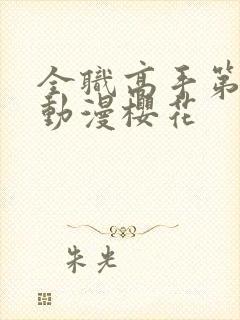 全職高手第
動漫櫻花
朱光